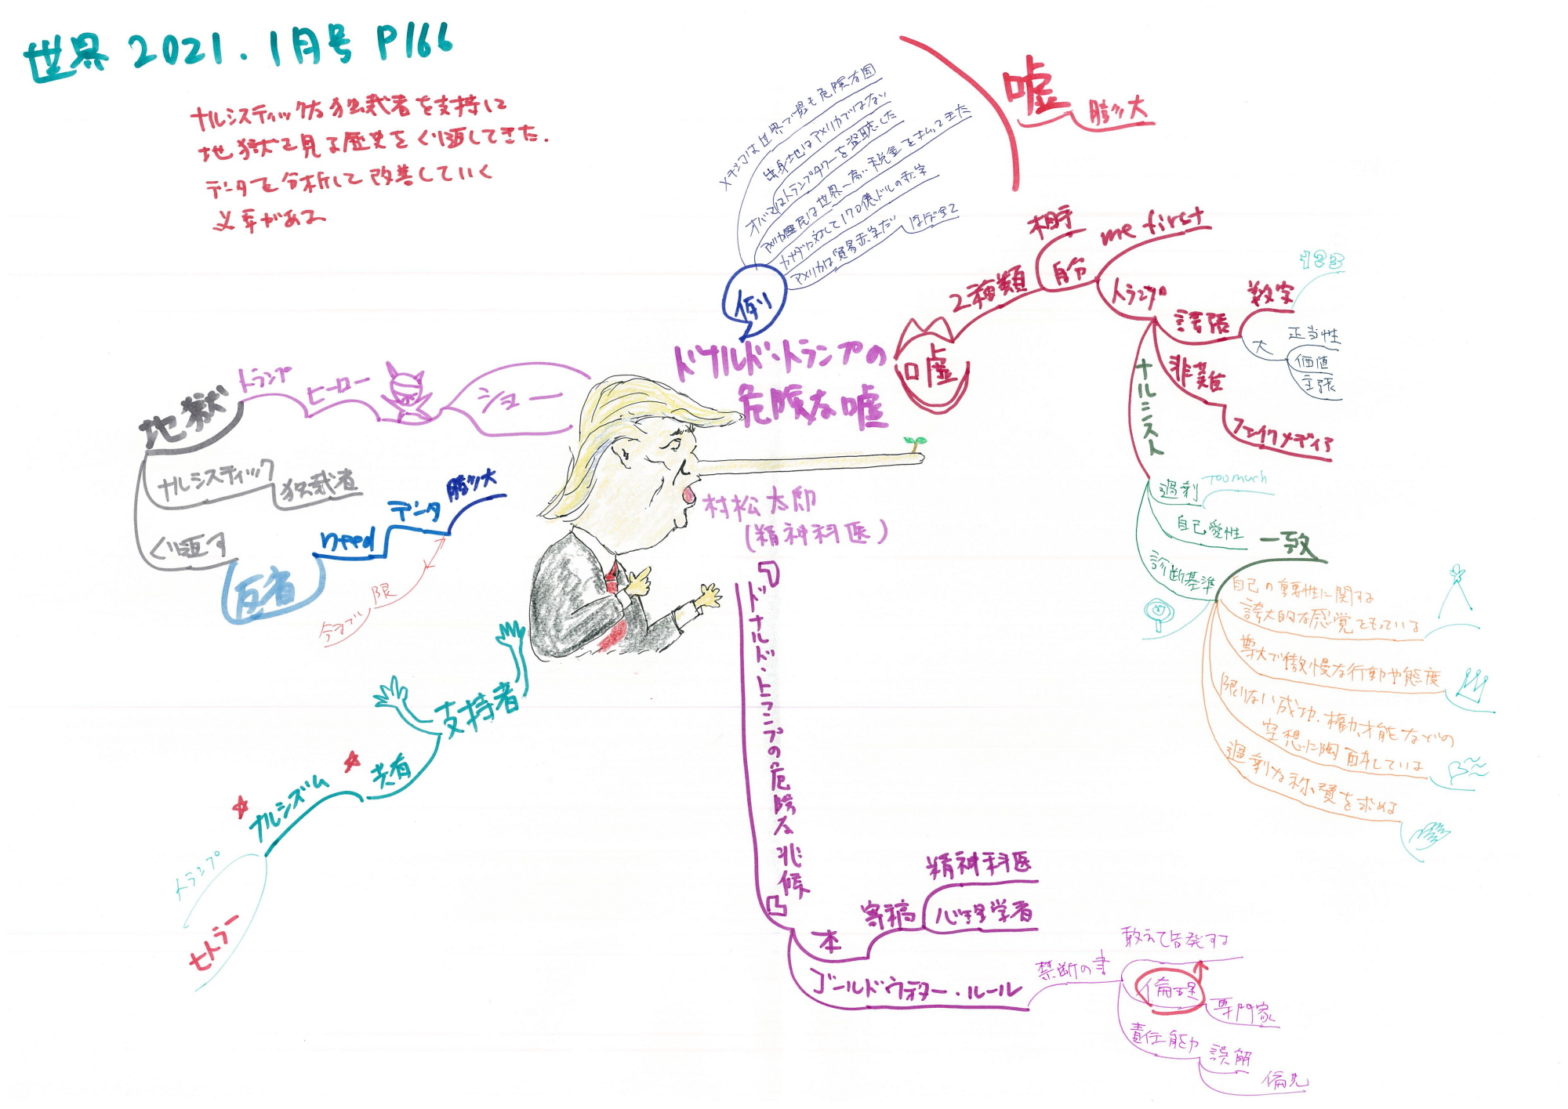 世界 2021.1月号 P166
ナルシスティックな独裁者を支持に
地獄を見る歴史をくり返してきた.
データを分析して改善していく
必要がある
メキシコは世界で最も危険な国
出身地はアメリカではない
オバマはトランプタワーを盗聴した
アメリカ国民は世界一高い税金を払ってきた
カナダに対して170億ドルの赤字
アメリカは貿易赤字だ
例
嘘
膨大
ドナルド・トランプの
危険な嘘
村松太郎
(精神科医)
嘘
2種類
相手
自分
me first
トランプ
誇張
数字
123
大
正当性
価値
主張
非難
フェイクメディア
ナルシスト
過剰
Too much
自己愛性
診断基準
一致
自己の重要性に関する
誇大的な感覚をもっている
尊大で傲慢な行動や態度
限りない成功、権力、才能などの
空想に陶酔している
過剰な称賛を求める
『ドナルド・トランプの危険な兆候』
本
寄稿
精神科医
心理学者
ゴールドウォーター・ルール
禁断の書
敢えて告発する
倫理
専門家
責任能力
誤解
偏見
支持者
共有
ナルシズム
トランプ
ヒトラー
ショー
ヒーロー
トランプ
地獄
ナルシスティック
独裁者
くり返す
反省
need
データ
膨大
限
今まで